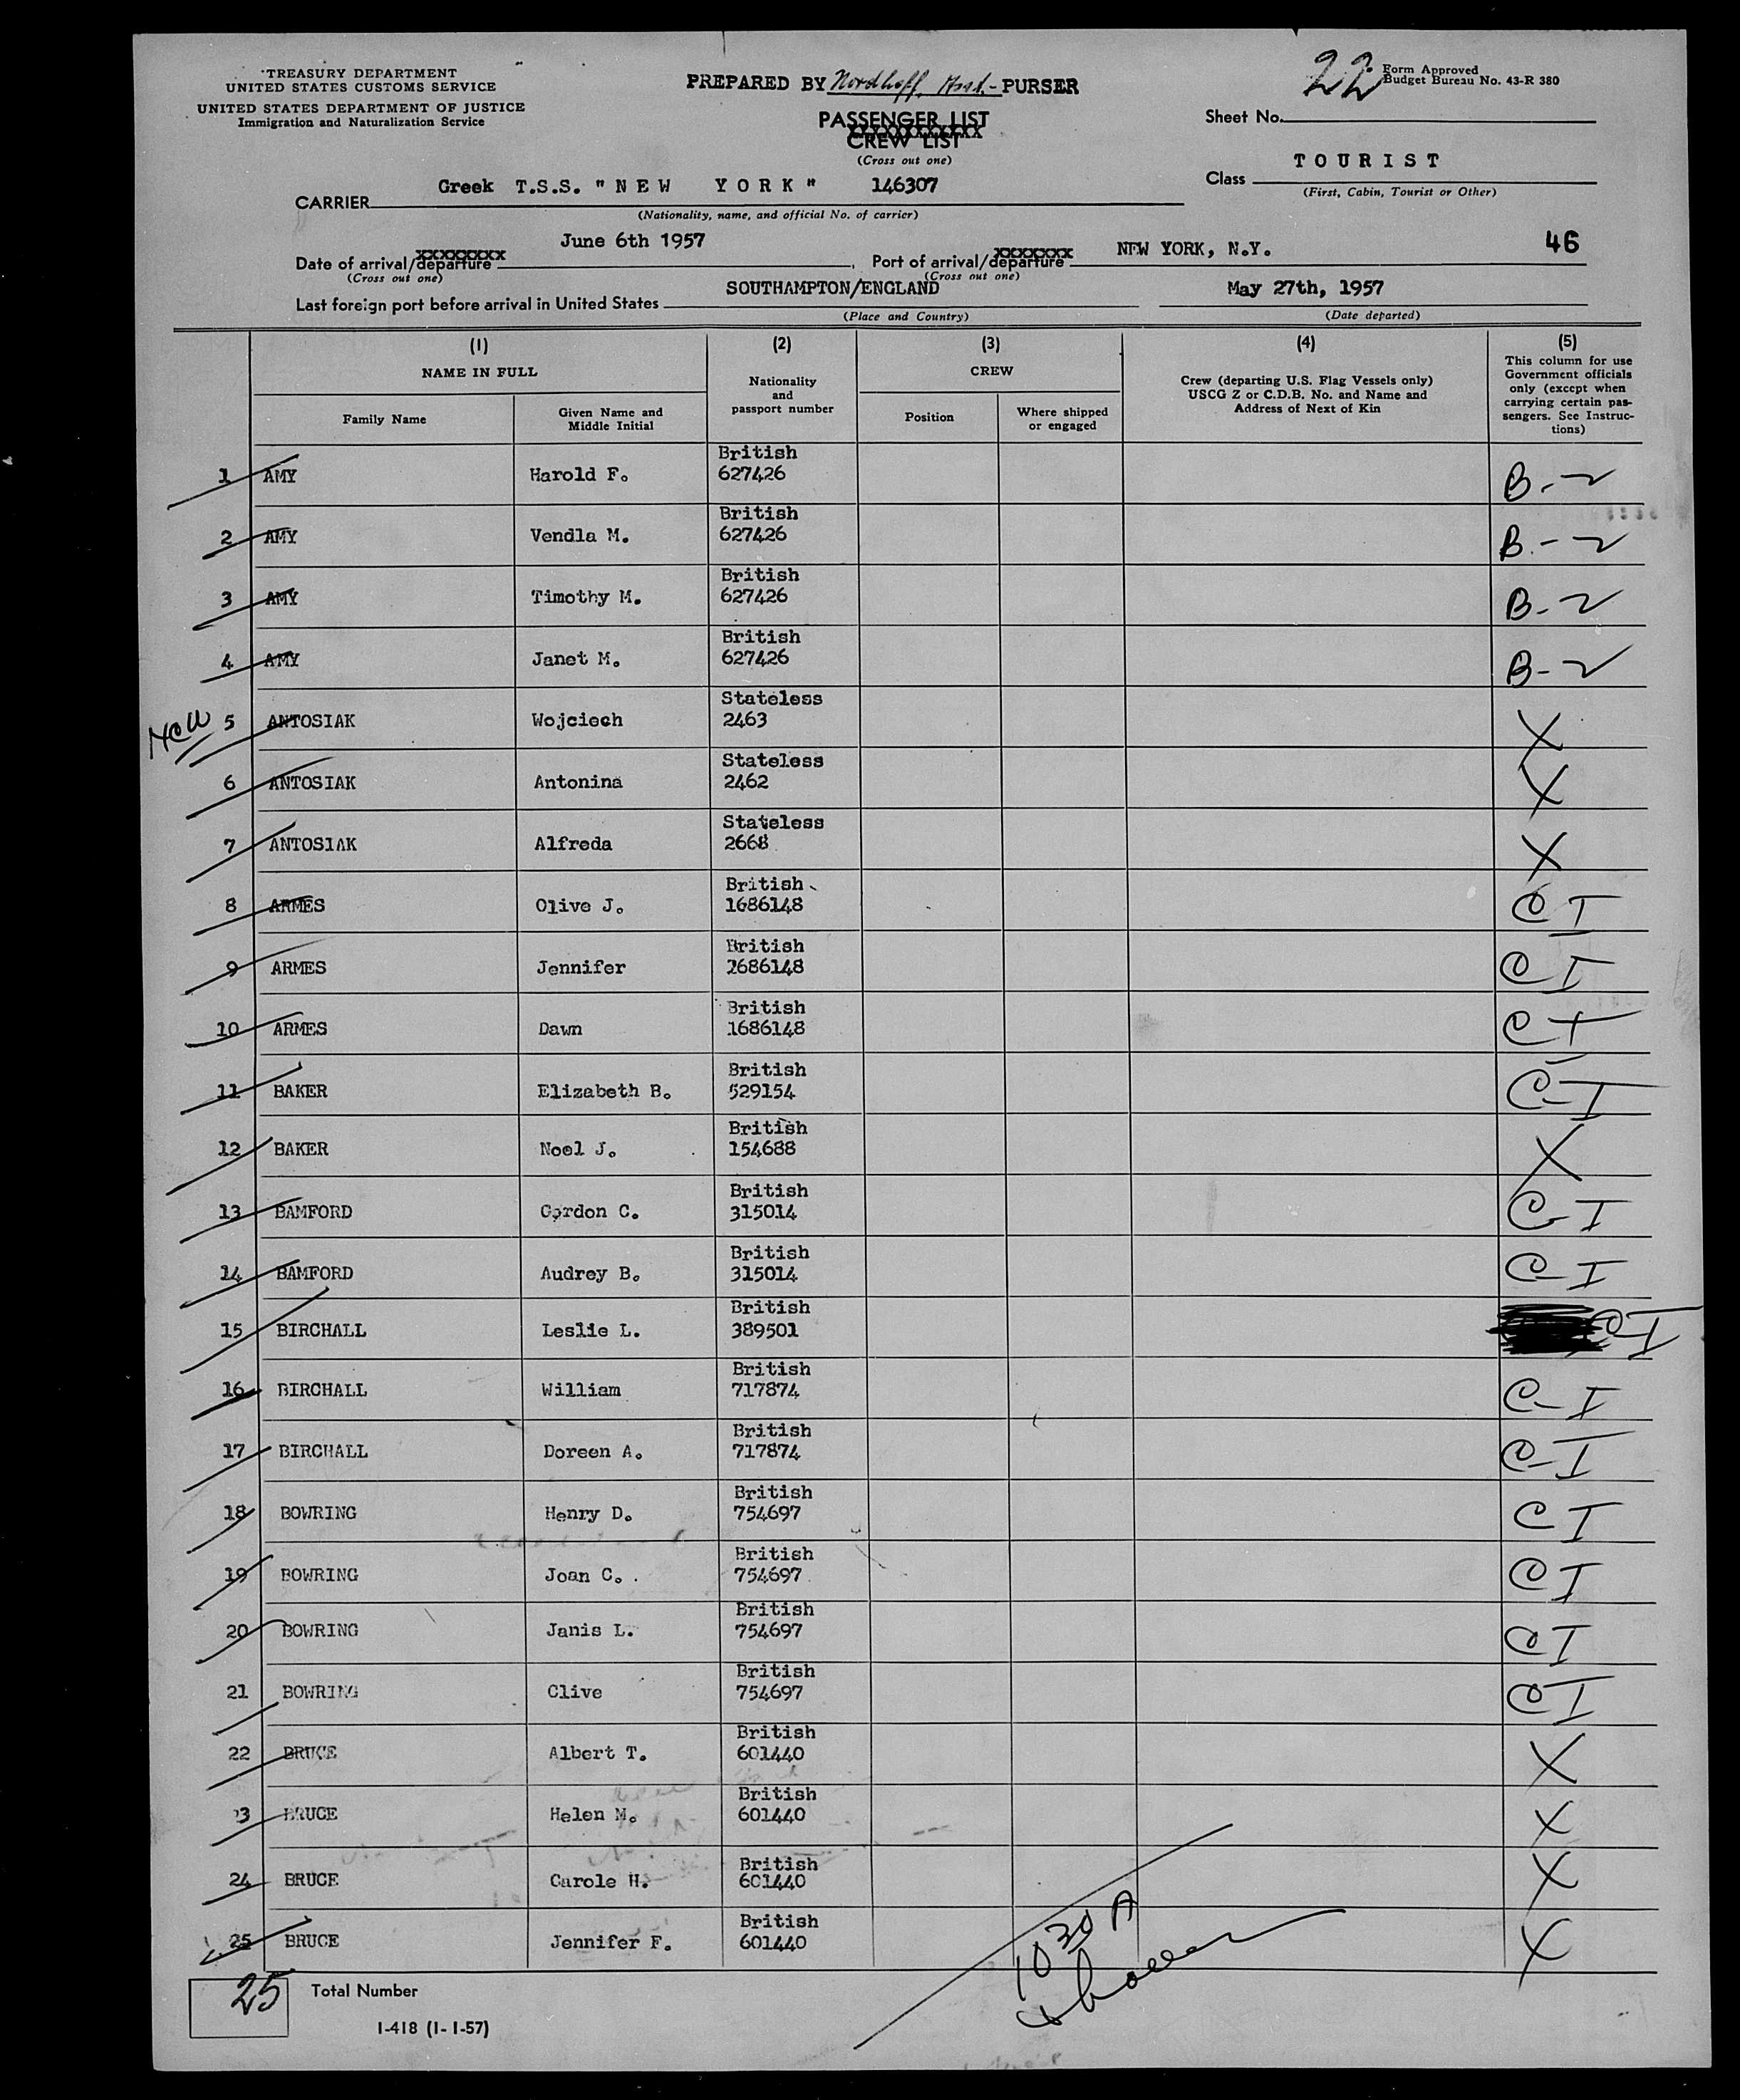 TREASURY DEPARTMENT
UNITED STATES CUSTOMS SERVICE
UNITED STATES DEPARTMENT OF JUSTICE
Immigration and Naturalization Service
PREPARED BY Nordhoff, Asst.- PURSER
PASSENGER LIST
CREW LIST
(Cross out one)
22
Form Approved
Budget Bureau No. 43-R 380
Sheet No.
TOURIST
Class
(First, Cabin, Tourist or Other)
Greek T.S.S. "NEW YORK" 146307
CARRIER
(Nationality, name, and official No. of carrier)
June 6th 1957
xxxxxxxx
Date of arrival/departure
(Cross out one)
NEW YORK, N.Y.
46
xxxxxxx
Port of arrival/departure
(Cross out one)
SOUTHAMPTON/ENGLAND
May 27th, 1957
Last foreign port before arrival in United States
(Place and Country)
(Date departed)
(1)
NAME IN FULL
Family Name
Given Name and
Middle Initial
(2)
Nationality
and
passport number
(3)
CREW
Position
Where shipped
or engaged
(4)
Crew (departing U.S. Flag Vessels only)
USCG Z or C.D.B. No. and Name and
Address of Next of Kin
(5)
This column for use
Government officials
only (except when
carrying certain pas-
sengers. See Instruc-
tions)
British
1 AMY Harold F. 627426 B-2
British
2 AMY Vendla M. 627426 B-2
British
3 AMY Timothy M. 627426 B-2
British
4 AMY Janet M. 627426 B-2
Stateless
New 5 ANTOSIAK Wojciech 2463 X
Stateless
6 ANTOSIAK Antonina 2462 X
Stateless
7 ANTOSIAK Alfreda 2668 X
British
8 ARMES Olive J. 1686148 C I
British
9 ARMES Jennifer 1686148 C I
British
10 ARMES Dawn 1686148 C I
British
11 BAKER Elizabeth B. 529154 C-I
British
12 BAKER Noel J. 154688 X
British
13 BAMFORD Gordon C. 315014 C-I
British
14 BAMFORD Audrey B. 315014 C-I
British
15 BIRCHALL Leslie L. 389501 C-I
British
16 BIRCHALL William 717874 C-I
British
17 BIRCHALL Doreen A. 717874 C-I
British
18 BOWRING Henry D. 754697 C I
British
19 BOWRING Joan C. 754697 C I
British
20 BOWRING Janis L. 754697 C I
British
21 BOWRING Clive 754697 C I
British
22 BRUCE Albert T. 601440 X
British
23 BRUCE Helen M. 601440 X
British
24 BRUCE Carole H. 601440 X
British
25 BRUCE Jennifer F. 601440 X
10 30 A
25 Total Number
I-418 (1-1-57)